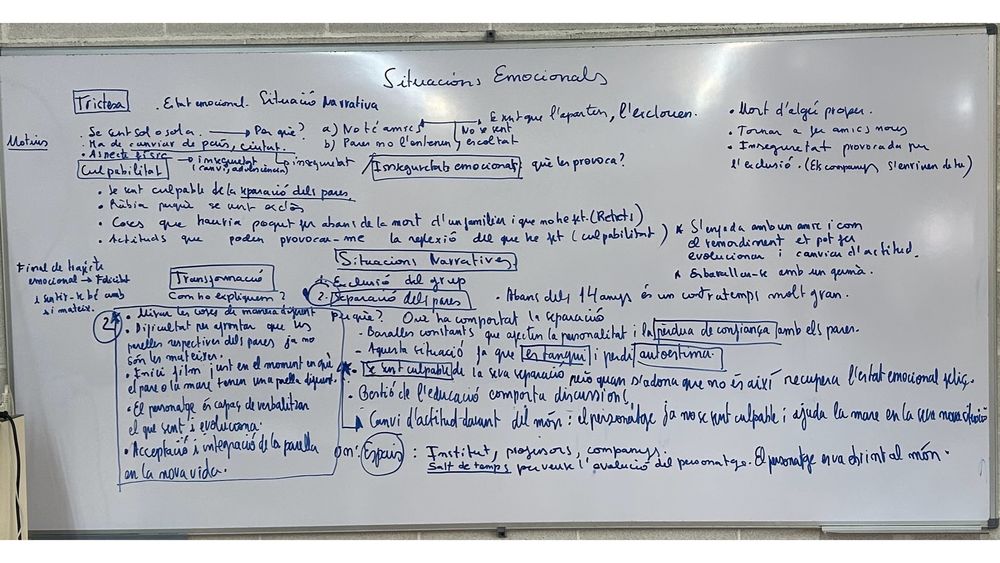 Situacións Emocionals
Trictesa
. Estat emocional. Situació Narrativa
Motius
. Se sent sol o sola. → Per què? a) No té amics
No se sent
E sent que l'aparten, l'exclouen.
. Ha de canviar de país, ciutat.
b) Pares no l'entenen, escoltat
. Aspecte físic → inseguretat
(canvi, adolescència)
inseguretat
Inseguretats emocionals què les provoca?
• Mort d'algú proper.
• Tornar a fer amics nous
• Inseguretat provocada per
l'exclusió. (Els companys s'enriuen de tu)
Culpabilitat
• Se sent culpable de la separació dels pares
• Ràbia perquè se sent
• Coses que hauria pogut fer abans de la mort d'un familiar i que no he fet. (Retrets)
• Actituds que poden provocar-me la reflexió del que he fet (culpabilitat)
* S'enfada amb un amic i com
el remordiment et pot fer
evolucionar i canviar d'actitud.
* Esbarallar-se amb un germà.
Situacions Narratives
Final de trajecte
emocional → Felicitat
i sentir-se bé amb
si mateix.
Transformació
Com ho expliquem?
2*
• Mirar les coses de manera diferent
• Dificultat per afrontar que les
parelles respectives dels pares ja no
són les mateixes.
• Inici film just en el moment en què
el pare o la mare tenen una parella diferent.
• El personatge és capaç de verbalitzar
el que sent i evoluciona.
• Acceptació i integració de la parella
en la nova vida.
1 Exclusió del grup
2. Separació dels pares
• Abans dels 14 anys és un contratemps molt gran.
Per què? Què ha comportat la separació
- Baralles constants que afecten la personalitat i la pèrdua de confiança amb els pares.
- Aquesta situació fa que es tanqui i perdi autoestima.
* • Se sent culpable de la seva separació però quan s'adona que no és així recupera l'estat emocional feliç.
• Gestió de l'educació comporta discussions
Canvi d'actitud davant del món: el personatge ja no se sent culpable i ajuda la mare en la seva nova situació
on: Espais : Institut, professors, companys.
Salt de temps per veure l'evolució del personatge. El personatge en va oberint al món.